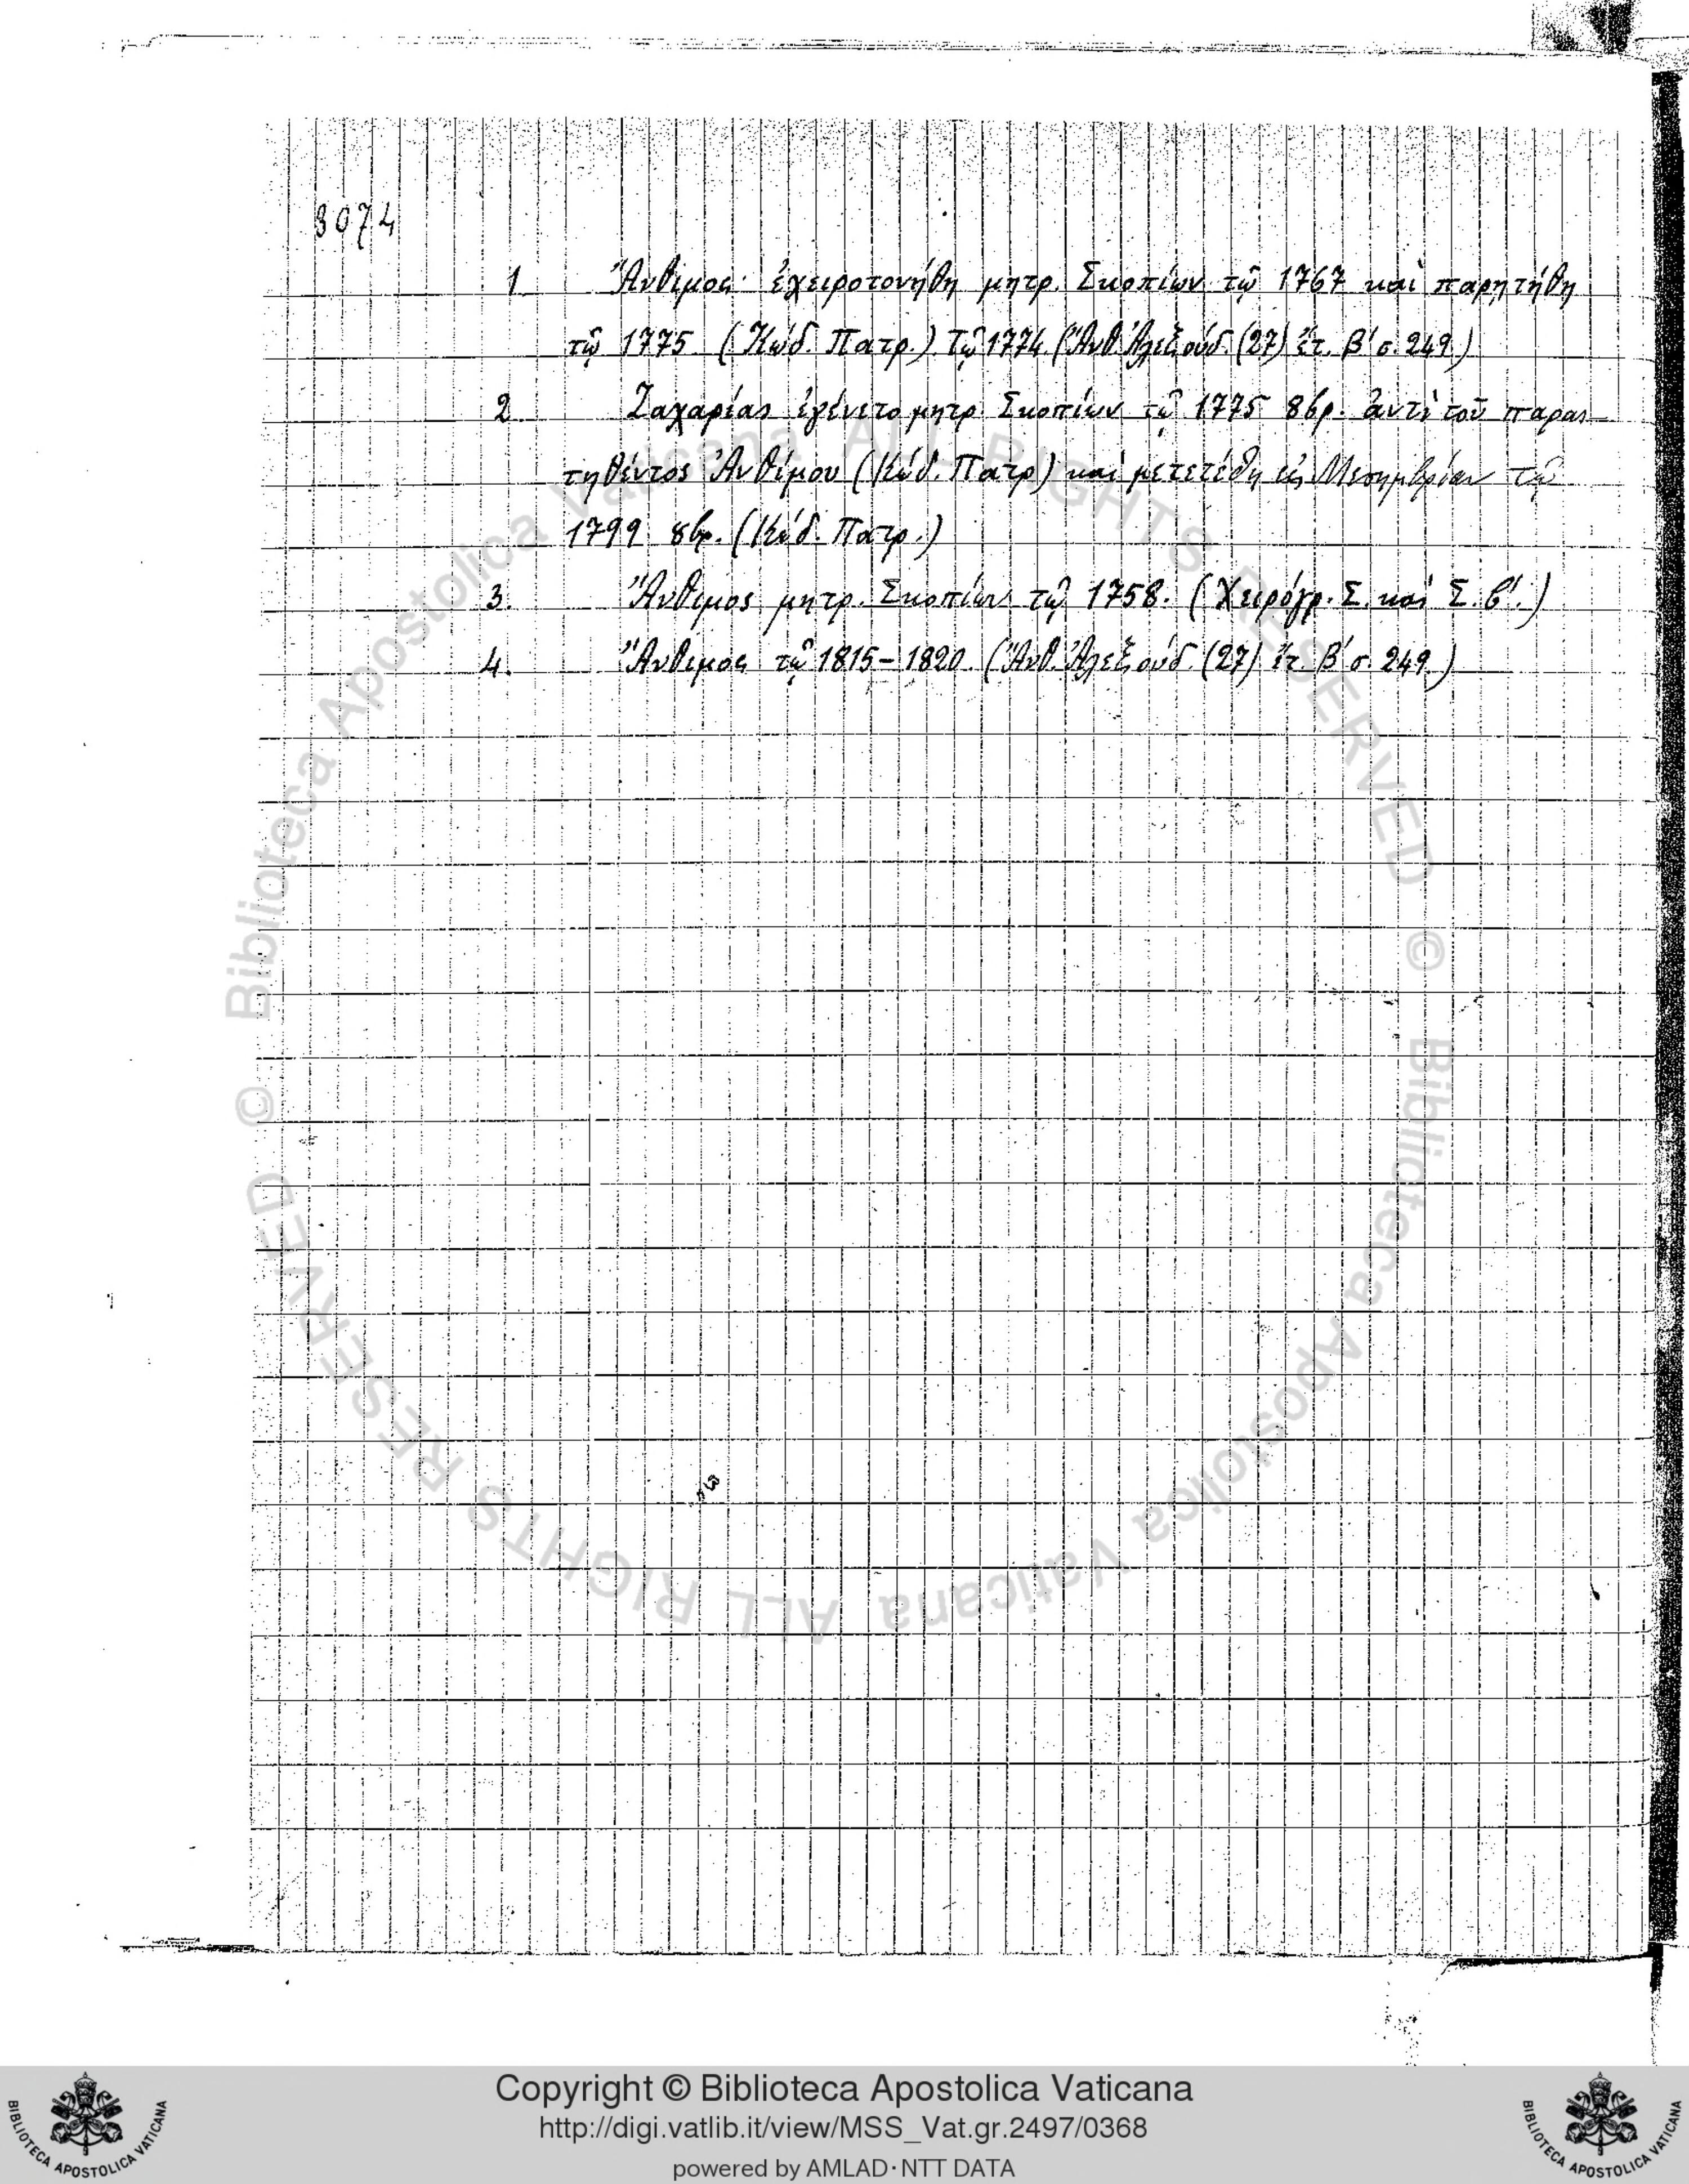 3074
1 Ἄνθιμος· ἐχειροτονήθη μητρ. Σκοπίων τῷ 1767 καὶ παρῃτήθη
τῷ 1775 (Κώδ. Πατρ.) Τῷ 1774 (Ἄνθ. Ἀλεξούδ. (27) ἔτ. Β΄ σ. 249)
2 Ζαχαρίας ἐγένετο μητρ. Σκοπίων τῷ 1775 8βρ. ἀντὶ τοῦ παραι-
τηθέντος Ἀνθίμου (Κώδ. Πατρ) καὶ μετετέθη εἰς Μεσημβρίαν τῷ
1799 8βρ. (Κώδ. Πατρ.)
3. Ἄνθιμος μητρ. Σκοπίων τῷ 1758. (Χειρόγρ. Σ. καὶ Σ. β΄.)
4. Ἄνθιμος τῷ 1815-1820 (Ἄνθ. Ἀλεξούδ. (27) ἔτ. Β΄ σ. 249.)
© Biblioteca Apostolica Vaticana ALL RIGHTS RESERVED
© Biblioteca Apostolica Vaticana ALL RIGHTS RESERVED
BIBLIOTECA APOSTOLICA VATICANA
Copyright © Biblioteca Apostolica Vaticana
http://digi.vatlib.it/view/MSS_Vat.gr.2497/0368
powered by AMLAD·NTT DATA
BIBLIOTECA APOSTOLICA VATICANA